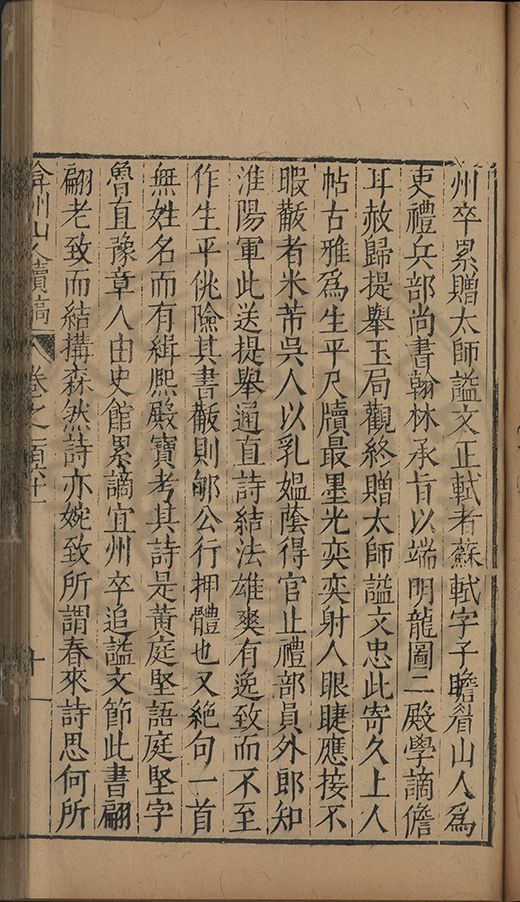 州卒累贈太師謚文正軾者蘇軾字子瞻眉山人爲
吏禮兵部尚書翰林承旨以端明龍圖二殿學謫儋
耳赦歸提舉玉局觀終贈太師謚文忠此寄久上人
帖古雅爲生平尺牘最墨光奕奕射人眼睫應接不
暇黻者米芾吳人以乳媼蔭得官止禮部員外郎知
淮陽軍此送提舉通直詩結法雄爽有逸致而不至
作生平佻險其書黻則郇公行押體也又絕句一首
無姓名而有緝熙殿寶考其詩是黃庭堅語庭堅字
魯直豫章人由史館累謫宜州卒追謚文節此書翩
翩老致而結搆森然詩亦婉致所謂春來詩思何所
弇州山人續稿 卷之一百六十一 十一